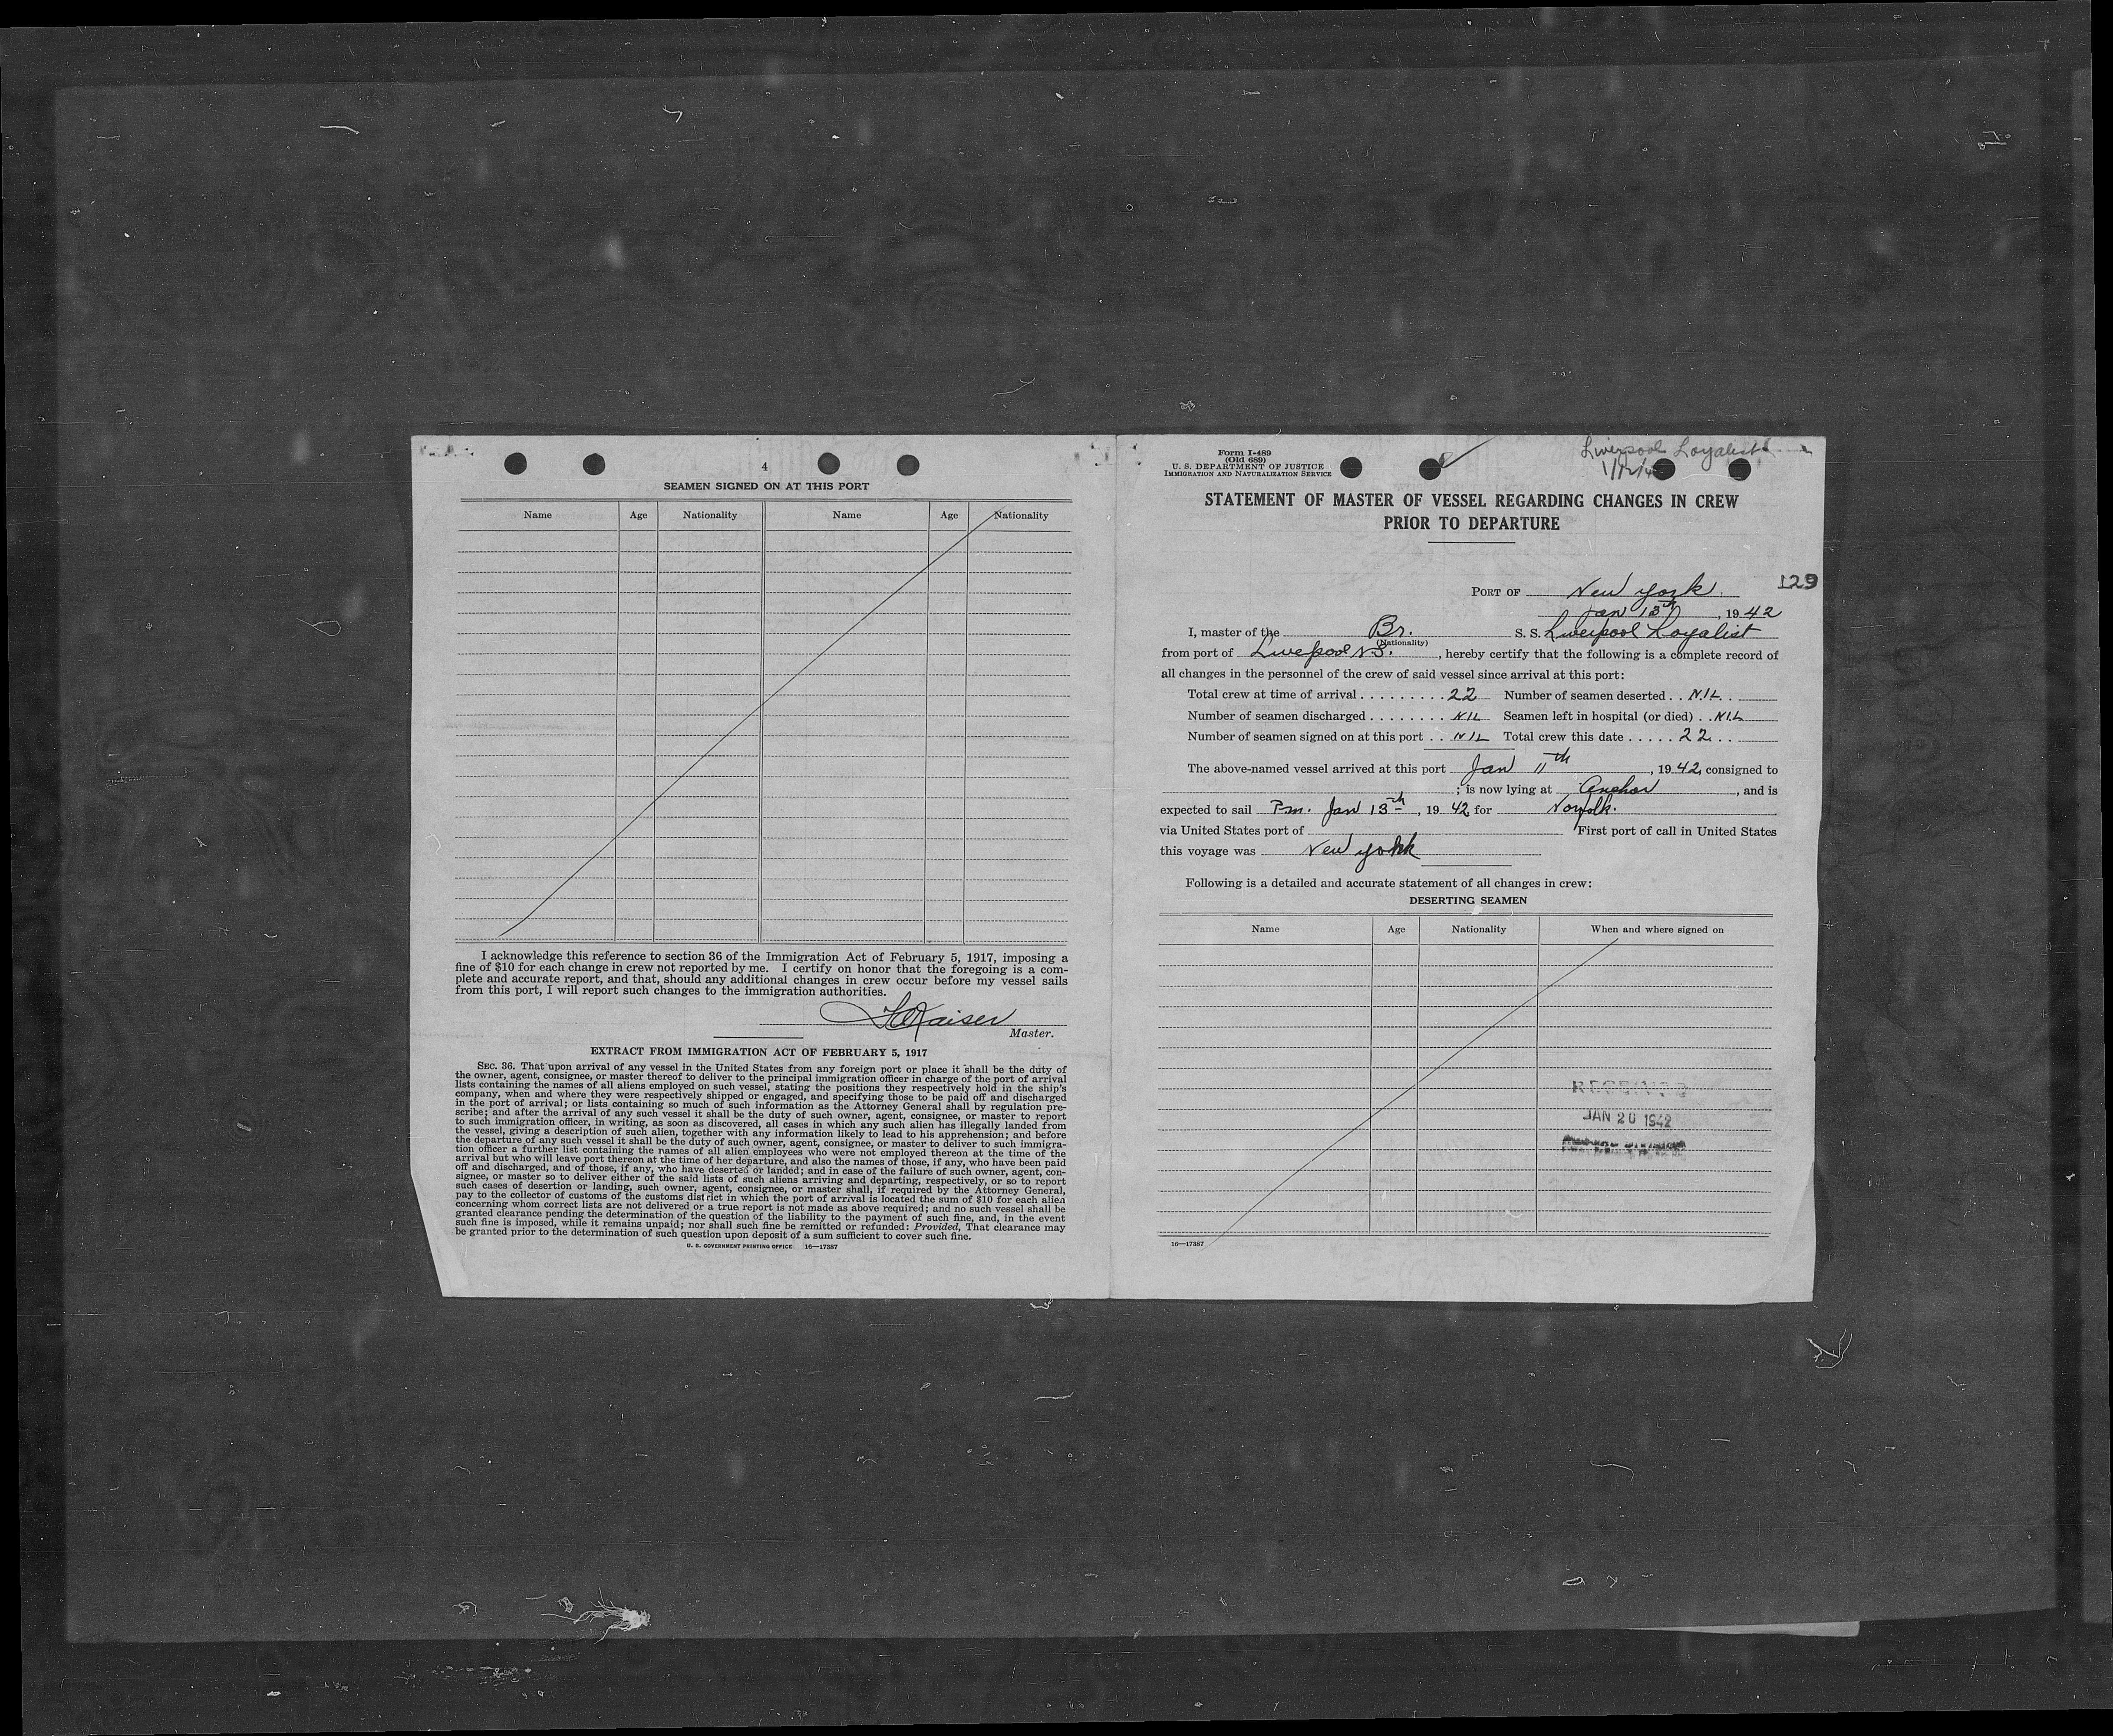 4
SEAMEN SIGNED ON AT THIS PORT
Name Age Nationality Name Age Nationality
I acknowledge this reference to section 36 of the Immigration Act of February 5, 1917, imposing a
fine of $10 for each change in crew not reported by me. I certify on honor that the foregoing is a com-
plete and accurate report, and that, should any additional changes in crew occur before my vessel sails
from this port, I will report such changes to the immigration authorities.
Master.
EXTRACT FROM IMMIGRATION ACT OF FEBRUARY 5, 1917
SEC. 36. That upon arrival of any vessel in the United States from any foreign port or place it shall be the duty of
the owner, agent, consignee, or master thereof to deliver to the principal immigration officer in charge of the port of arrival
lists containing the names of all aliens employed on such vessel, stating the positions they respectively hold in the ship's
company, when and where they were respectively shipped or engaged, and specifying those to be paid off and discharged
in the port of arrival; or lists containing so much of such information as the Attorney General shall by regulation pre-
scribe; and after the arrival of any such vessel it shall be the duty of such owner, agent, consignee, or master to report
to such immigration officer, in writing, as soon as discovered, all cases in which any such alien has illegally landed from
the vessel, giving a description of such alien, together with any information likely to lead to his apprehension; and before
the departure of any such vessel it shall be the duty of such owner, agent, consignee, or master to deliver to such immigra-
tion officer a further list containing the names of all alien employees who were not employed thereon at the time of the
arrival but who will leave port thereon at the time of her departure, and also the names of those, if any, who have been paid
off and discharged, and of those, if any, who have deserted or landed; and in case of the failure of such owner, agent, con-
signee, or master so to deliver either of the said lists of such aliens arriving and departing, respectively, or so to report
such cases of desertion or landing, such owner, agent, consignee, or master shall, if required by the Attorney General,
pay to the collector of customs of the customs district in which the port of arrival is located the sum of $10 for each alien
concerning whom correct lists are not delivered or a true report is not made as above required; and no such vessel shall be
granted clearance pending the determination of the question of the liability to the payment of such fine, and, in the event
such fine is imposed, while it remains unpaid; nor shall such fine be remitted or refunded: Provided, That clearance may
be granted prior to the determination of such question upon deposit of a sum sufficient to cover such fine.
U. S. GOVERNMENT PRINTING OFFICE 16—17387
Form I-489
(Old 689)
U. S. DEPARTMENT OF JUSTICE
IMMIGRATION AND NATURALIZATION SERVICE
Liverpool Loyalist
STATEMENT OF MASTER OF VESSEL REGARDING CHANGES IN CREW
PRIOR TO DEPARTURE
129
PORT OF New York
Jan 13th, 1942
I, master of the Br. S. S. Liverpool Loyalist
(Nationality)
from port of Livepool N.S., hereby certify that the following is a complete record of
all changes in the personnel of the crew of said vessel since arrival at this port:
Total crew at time of arrival . . . . . . . . . 22 Number of seamen deserted . . NIL
Number of seamen discharged . . . . . . . . NIL Seamen left in hospital (or died) . . NIL
Number of seamen signed on at this port . . NIL Total crew this date . . . . . 22
The above-named vessel arrived at this port Jan 11th, 1942, consigned to
; is now lying at Anchor, and is
expected to sail Pm. Jan 13th, 1942 for Norfolk.
via United States port of First port of call in United States
this voyage was New York
Following is a detailed and accurate statement of all changes in crew:
DESERTING SEAMEN
Name Age Nationality When and where signed on
RECEIVED
JAN 20 1942
16—17387